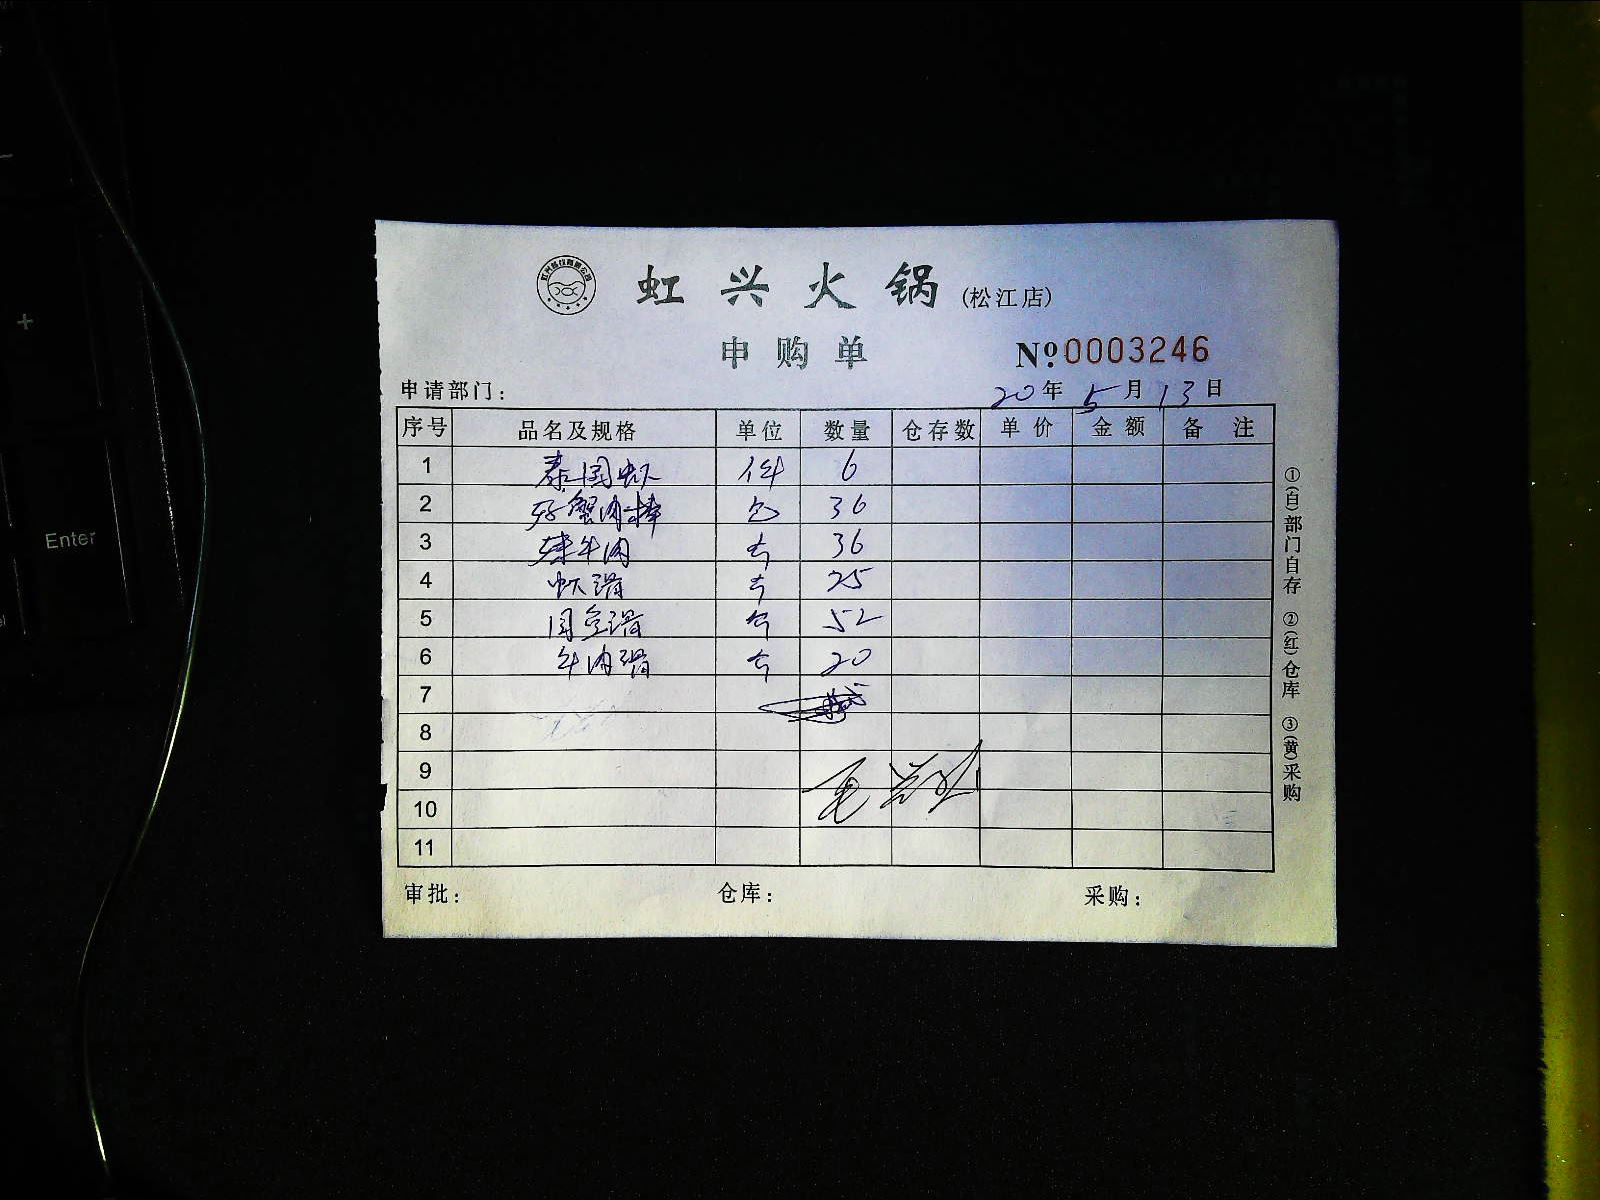 Enter
虹兴火锅(松江店)
申购单
№0003246
申请部门:
20年5月13日
序号 品名及规格 单位 数量 仓存数 单价 金额 备注
1 泰国虾 件 6
2 蟹肉棒 包 36
3 牛肉 36
4 虾滑 25
5 滑 52
6 牛肉滑 20
7
8
9
10
11
审批: 仓库: 采购:
①(白)部门自存 ②(红)仓库 ③(黄)采购